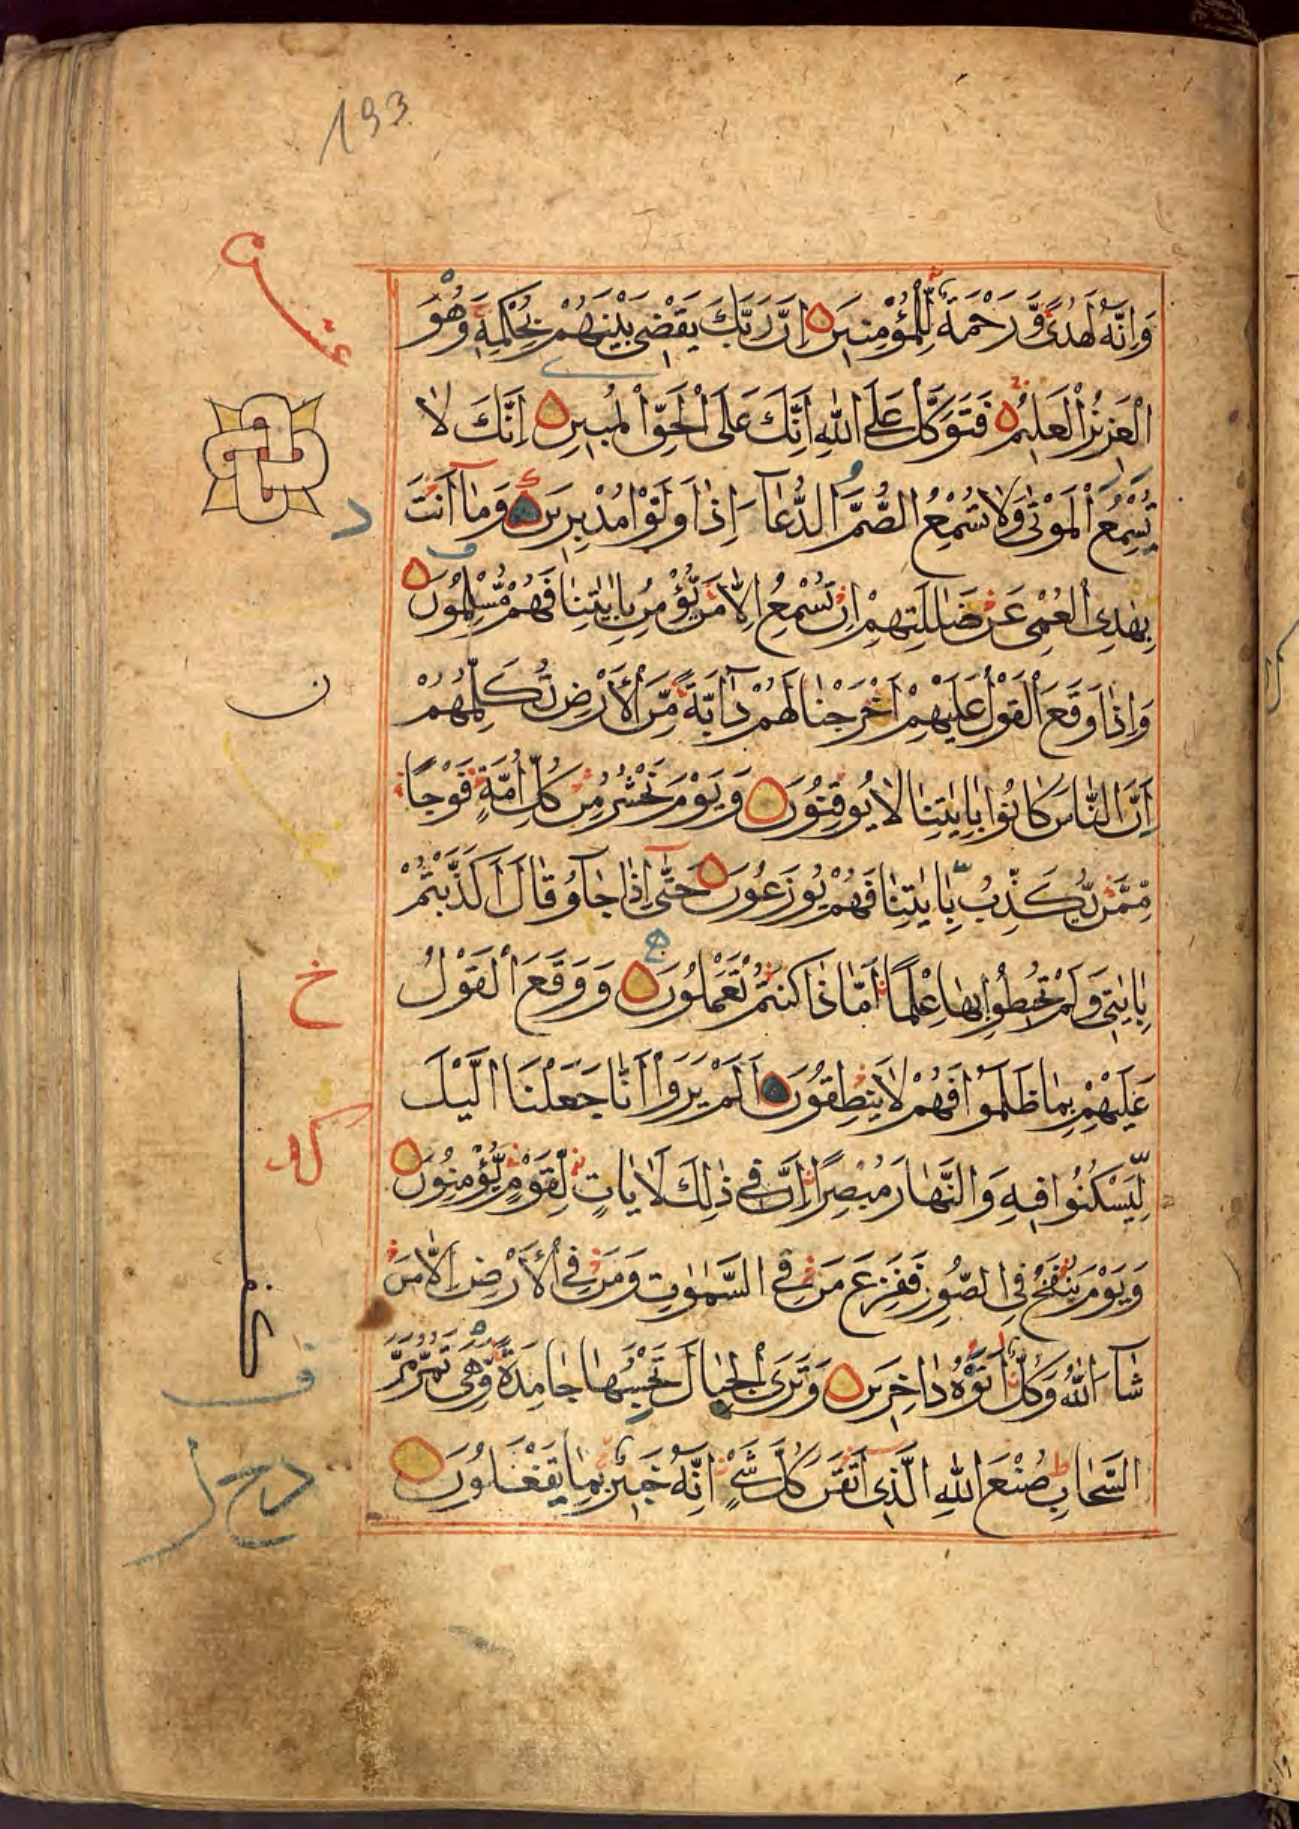 193
وَاِنَّهُ لَهُدًى وَّرَحْمَةٌ لِّلْمُؤْمِنِيْنَ ۝ اِنَّ رَبَّكَ يَقْضِى بَيْنَهُمْ بِحُكْمِهٖ وَهُوَ
الْعَزِيْزُ الْعَلِيْمُ ۝ فَتَوَكَّلْ عَلَى اللّٰهِ اِنَّكَ عَلَى الْحَقِّ الْمُبِيْنِ ۝ اِنَّكَ لَا
تُسْمِعُ الْمَوْتٰى وَلَا تُسْمِعُ الصُّمَّ الدُّعَآءَ اِذَا وَلَّوْا مُدْبِرِيْنَ ۝ وَمَآ اَنْتَ
بِهٰدِى الْعُمْيِ عَنْ ضَلٰلَتِهِمْ اِنْ تُسْمِعُ اِلَّا مَنْ يُّؤْمِنُ بِاٰيٰتِنَا فَهُمْ مُّسْلِمُوْنَ ۝
وَاِذَا وَقَعَ الْقَوْلُ عَلَيْهِمْ اَخْرَجْنَا لَهُمْ دَآبَّةً مِّنَ الْاَرْضِ تُكَلِّمُهُمْ
اِنَّ النَّاسَ كَانُوْا بِاٰيٰتِنَا لَا يُوْقِنُوْنَ ۝ وَيَوْمَ نَحْشُرُ مِنْ كُلِّ اُمَّةٍ فَوْجًا
مِّمَّنْ يُّكَذِّبُ بِاٰيٰتِنَا فَهُمْ يُوْزَعُوْنَ ۝ حَتّٰىٓ اِذَا جَآءُوْ قَالَ اَكَذَّبْتُمْ
بِاٰيٰتِىْ وَلَمْ تُحِيْطُوْا بِهَا عِلْمًا اَمَّا ذَا كُنْتُمْ تَعْمَلُوْنَ ۝ وَوَقَعَ الْقَوْلُ
عَلَيْهِمْ بِمَا ظَلَمُوْا فَهُمْ لَا يَنْطِقُوْنَ ۝ اَلَمْ يَرَوْا اَنَّا جَعَلْنَا الَّيْلَ
لِيَسْكُنُوْا فِيْهِ وَالنَّهَارَ مُبْصِرًا اِنَّ فِىْ ذٰلِكَ لَاٰيٰاتٍ لِّقَوْمٍ يُّؤْمِنُوْنَ ۝
وَيَوْمَ يُنْفَخُ فِى الصُّوْرِ فَفَزِعَ مَنْ فِى السَّمٰوٰتِ وَمَنْ فِى الْاَرْضِ اِلَّا مَنْ
شَآءَ اللّٰهُ وَكُلٌّ اَتَوْهُ دَاخِرِيْنَ ۝ وَتَرَى الْجِبَالَ تَحْسَبُهَا جَامِدَةً وَّهِىَ تَمُرُّ مَرَّ
السَّحَابِ صُنْعَ اللّٰهِ الَّذِىْ اَتْقَنَ كُلَّ شَىْءٍ اِنَّهٗ خَبِيْرٌ بِمَا يَفْعَلُوْنَ ۝